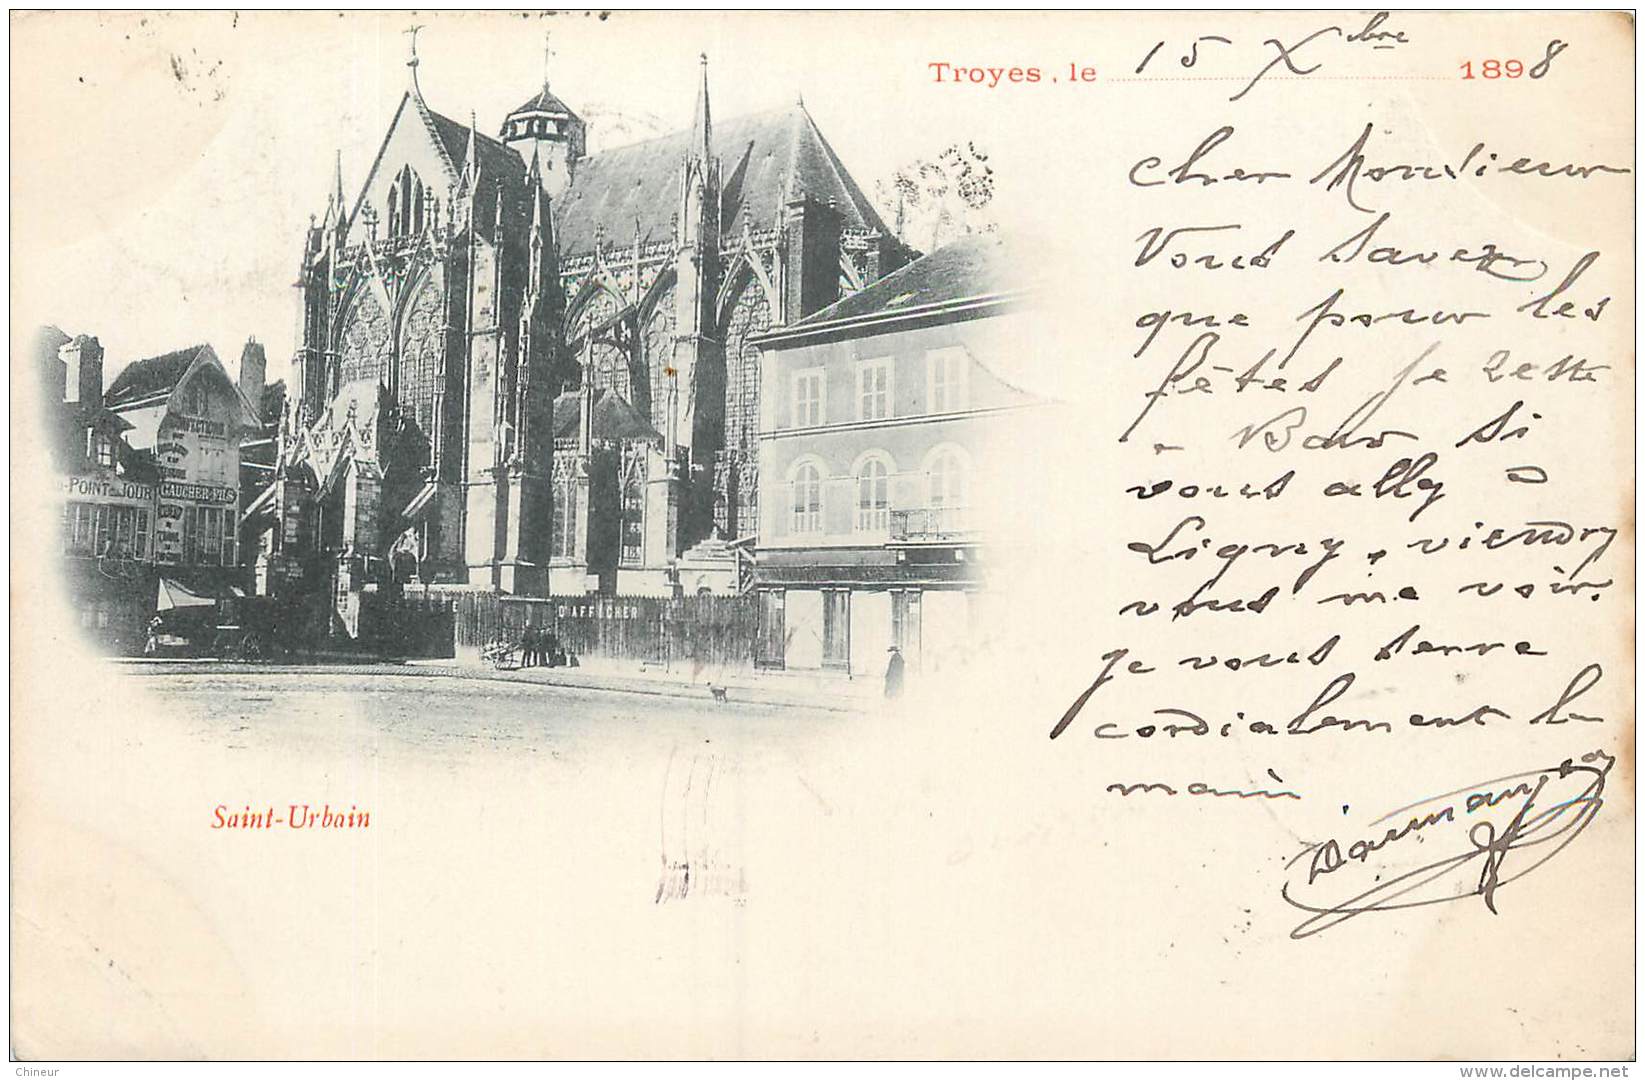 Troyes, le 15 Xbre 1898
Cher Monsieur
Vous savez
que pour les
fêtes je reste
à Bar si
vous allez à
Ligny, viendrez
vous me voir.
Je vous serre
cordialement la
main
POINT DU JOUR
GAUCHER-FILS
D'AFFICHER
Saint-Urbain
Chineur
www.delcampe.net